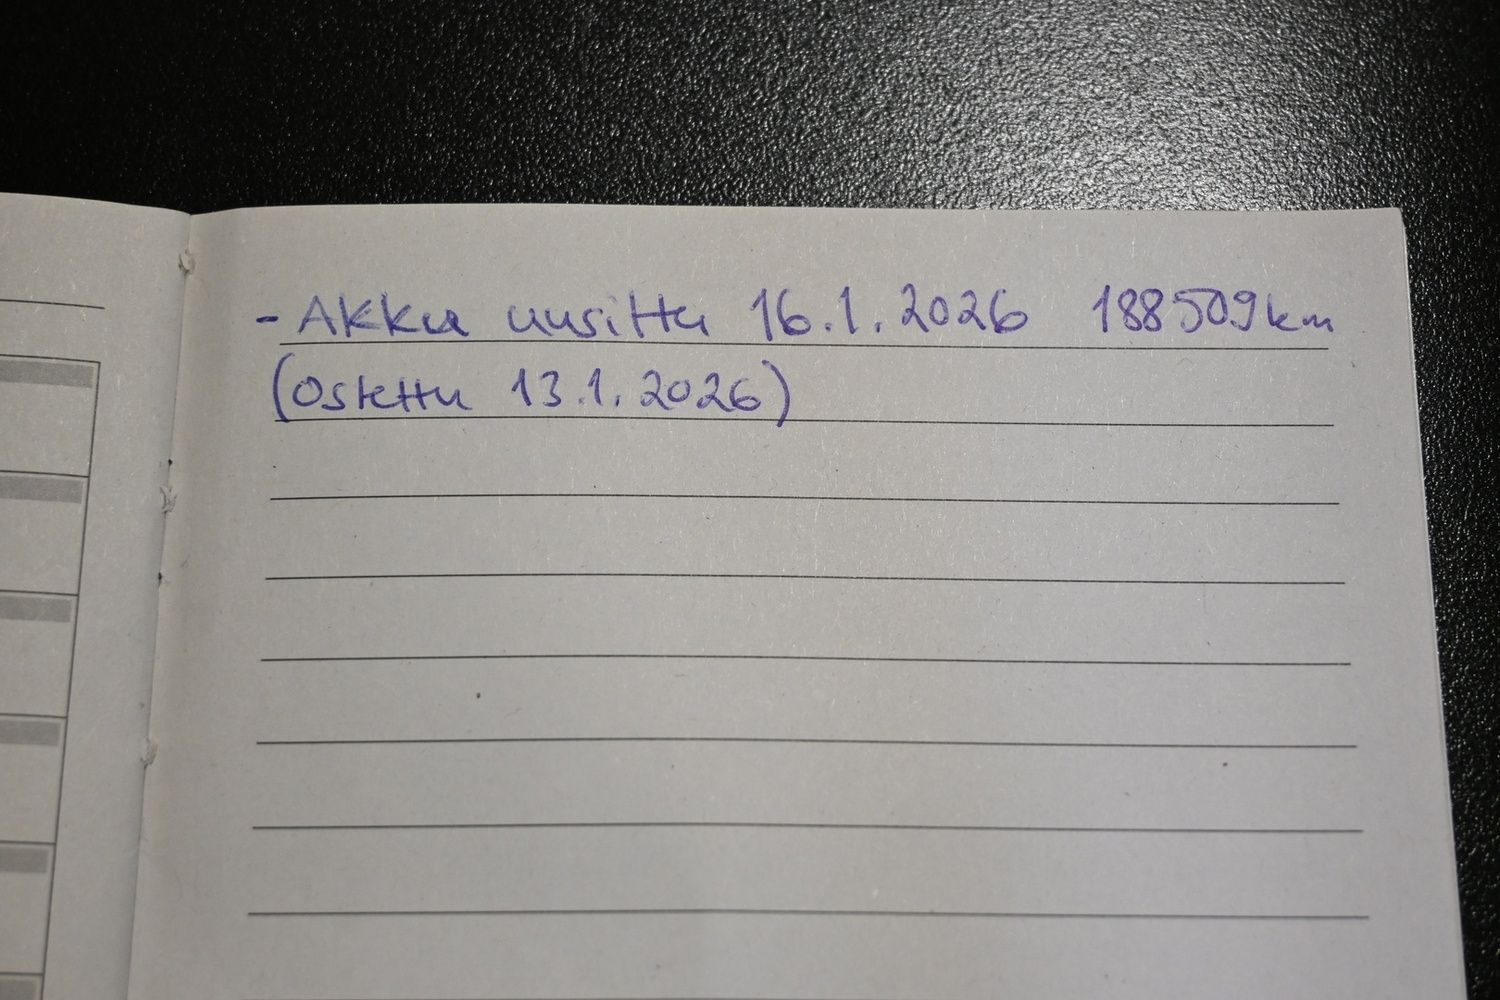 - Akku uusittu 16.1.2026 188509km
(Ostettu 13.1.2026)